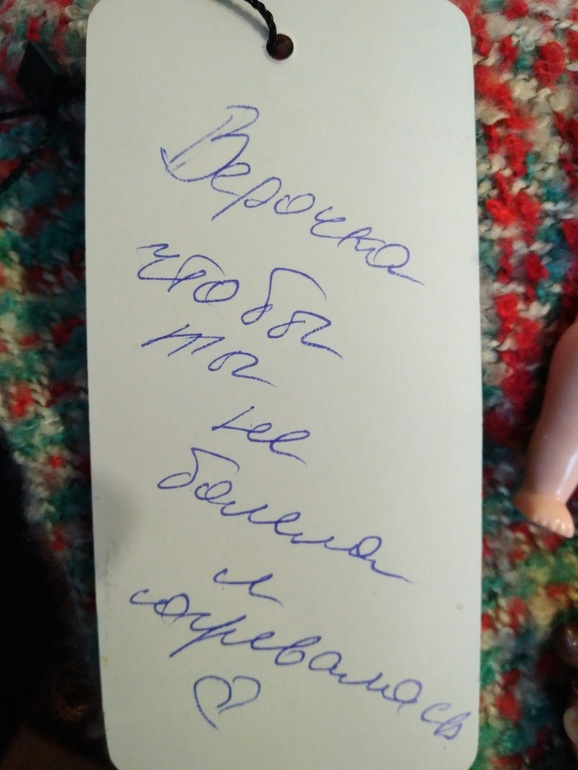 Верочка
чтобы
ты
не
болела
и
согревалась